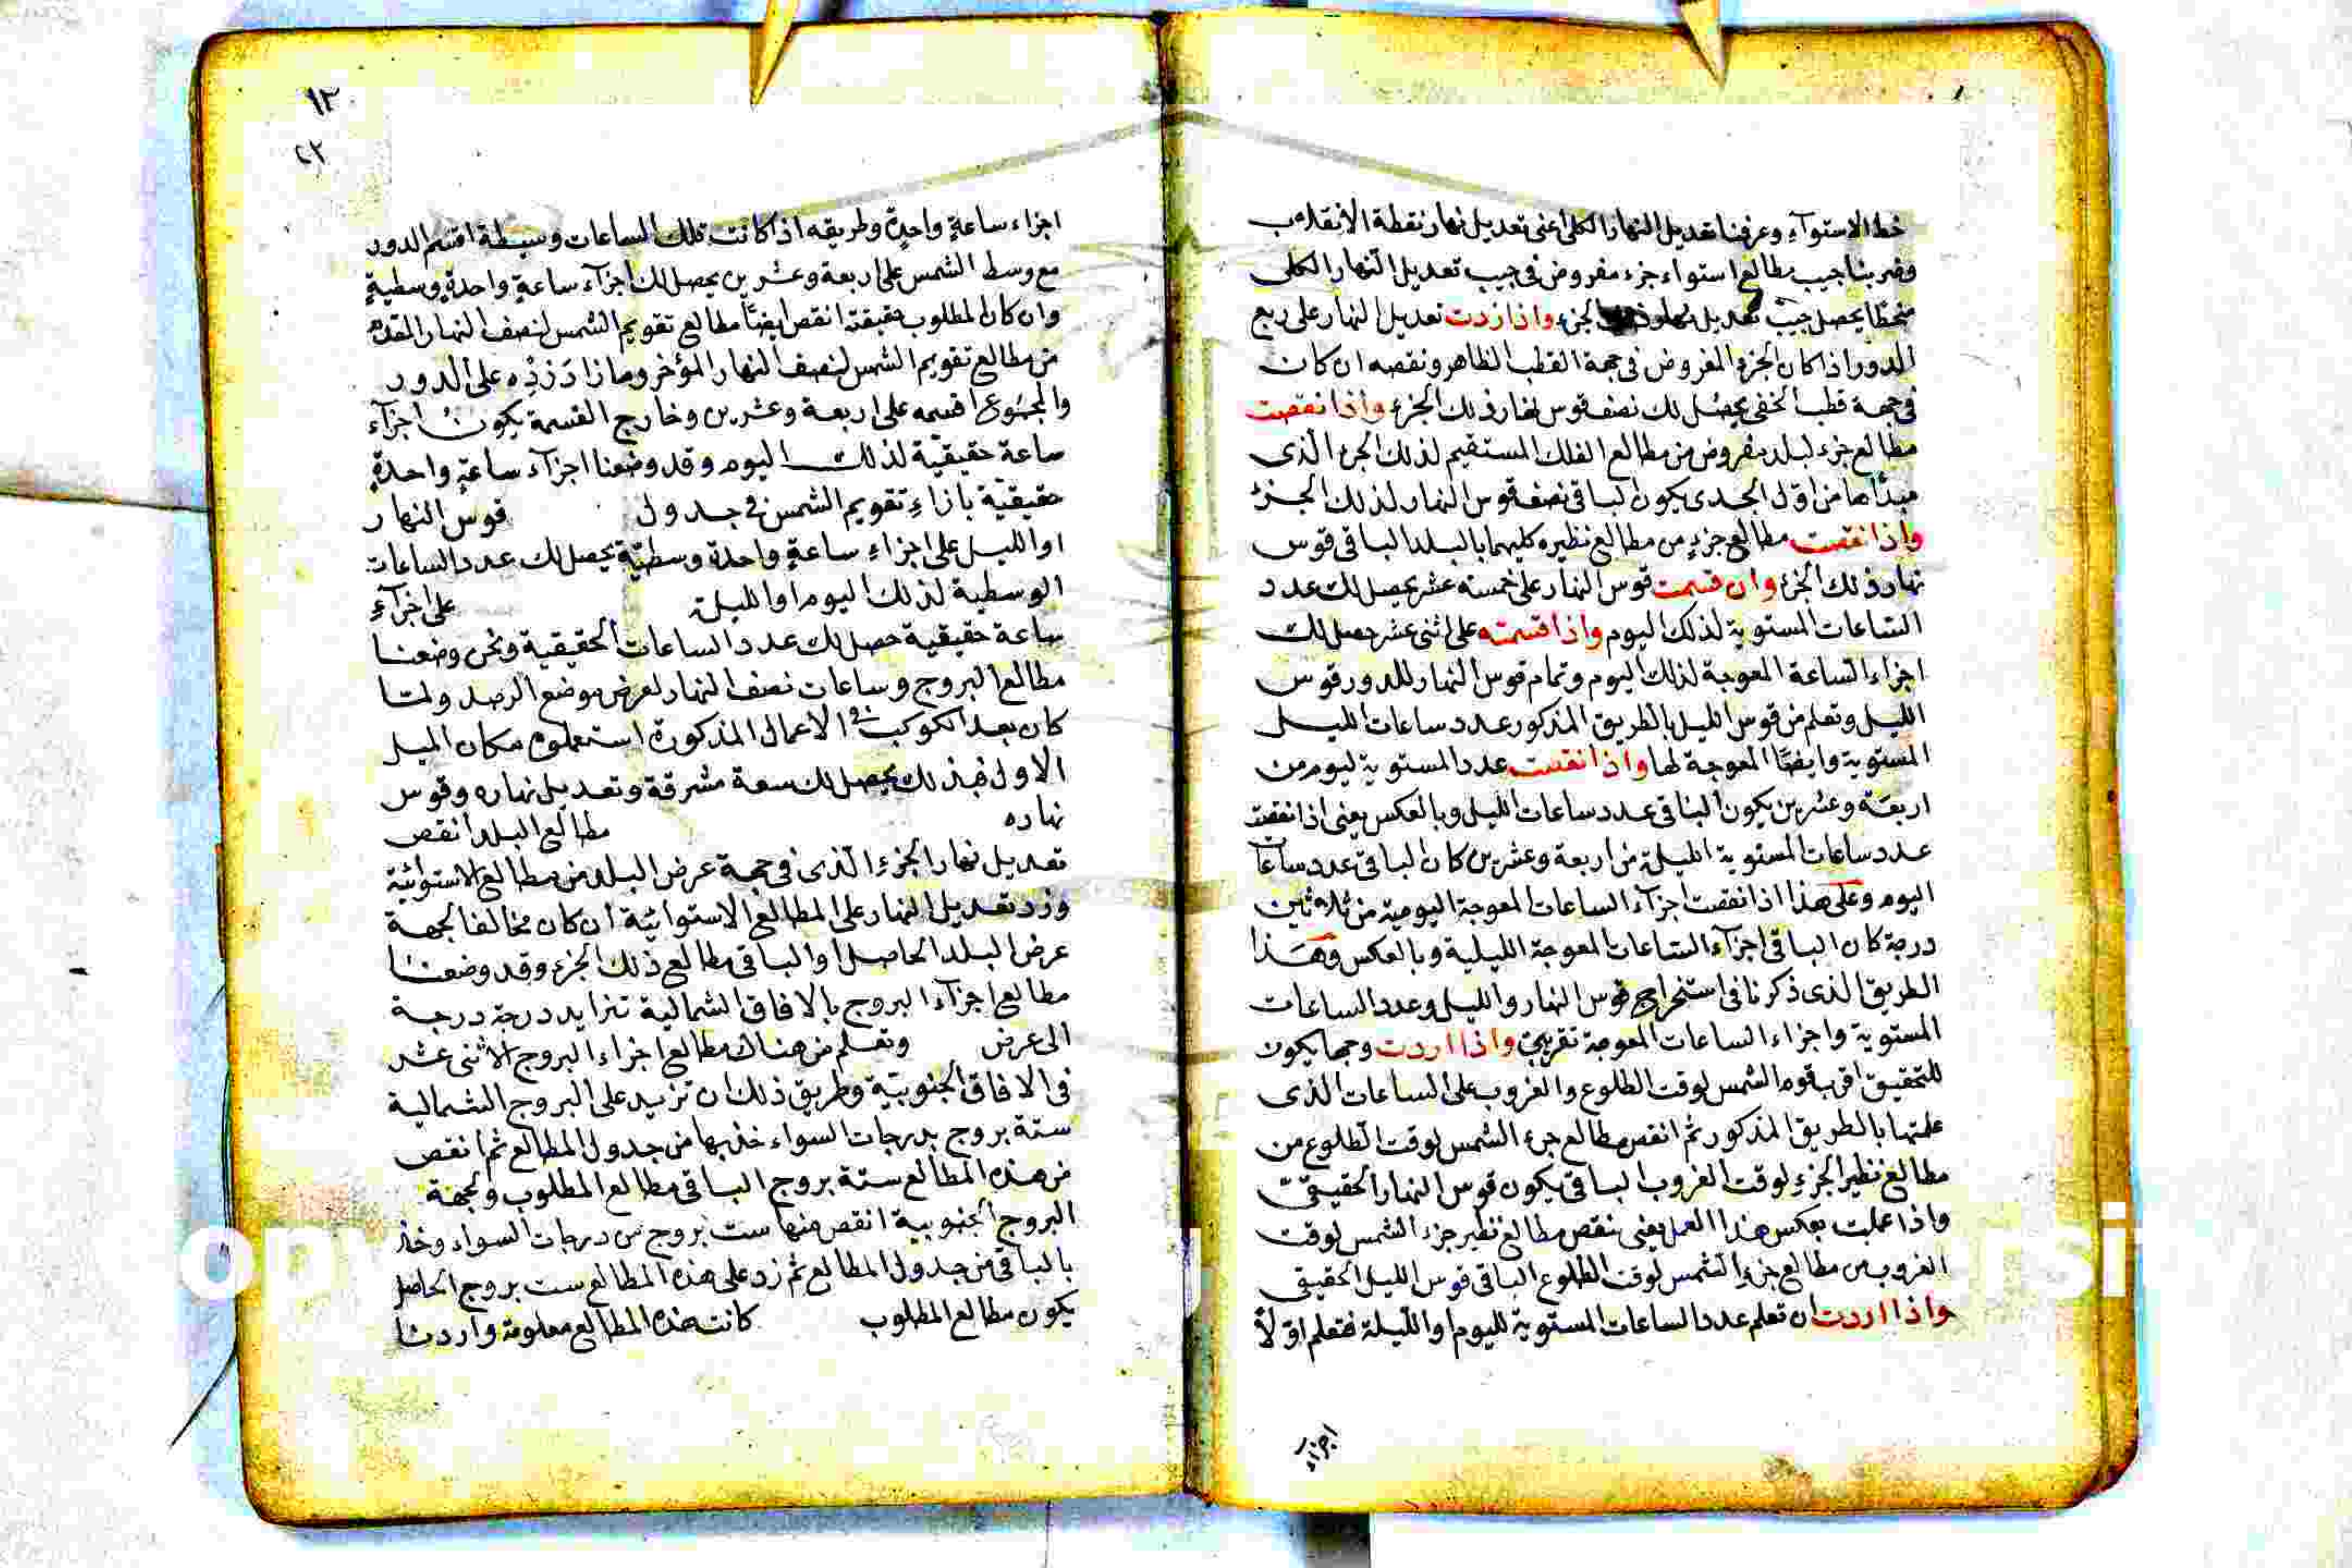 خط الاستوآء وعرفنا تعديل النهار الكلى اعنى تعديل نهار نقطة الانقلاب
وضربنا جيب مطالع استواء جزء مفروض فى جيب تعديل النهار الكلى
منحطا يحصل جيب تعديل نهار ذلك الجزء واذا زدت تعديل النهار على ربع
الدور اذا كان الجزء المفروض فى جهة القطب الظاهر ونقصه ان كان
فى جهة قطب الخفى يحصل لك نصف قوس نهار ذلك الجزء واذا نقصت
مطالع جزء لبلد مفروض من مطالع الفلك المستقيم لذلك الجزء الذى
مبدأها من اول الجدى يكون الباقى نصف قوس النهار لذلك الجزء
واذا نقصت مطالع جزءٍ من مطالع نظيره كليهما بالبلد الباقى قوس
نهار ذلك الجزء وان قسمت قوس النهار على خمسة عشر يحصل لك عدد
الساعات المستوية لذلك اليوم واذا قسمته على اثنى عشر حصل لك
اجزاء الساعة المعوجة لذلك اليوم وتمام قوس النهار للدور قوس
الليل وتعلم من قوس الليل بالطريق المذكور عدد ساعات الليل
المستوية وايضًا المعوجة لها واذا نقصت عدد المستوية ليوم من
اربعة وعشرين يكون الباقى عدد ساعات الليل وبالعكس يعنى اذا نقصت
عدد ساعات المستوية الليلة من اربعة وعشرين كان الباقى عدد ساعات
اليوم وعلى هذا اذا نقصت اجزآء الساعات المعوجة اليومية من ثلاثين
درجة كان الباقى اجزآء الساعات المعوجة الليلية وبالعكس وهذا
الطريق الذى ذكرنا فى استخراج قوس النهار والليل وعدد الساعات
المستوية واجزاء الساعات المعوجة تقريبىّ واذا اردت وجها يكون
للتحقيق اقرب قوم الشمس لوقت الطلوع والغروب على الساعات الذى
علمتها بالطريق المذكور ثم انقص مطالع جزء الشمس لوقت الطلوع من
مطالع نظير الجزء لوقت الغروب الباقى يكون قوس النهار الحقيقىّ
واذا عملت بعكس هذا العمل يعنى نقص مطالع نظير جزء الشمس لوقت
الغروب من مطالع جزء الشمس لوقت الطلوع الباقى قوس الليل الحقيقى
واذا اردت ان تعلم عدد الساعات المستوية لليوم او الليلة فتعلم اولاً
اجزاء
١٢
٤٢
اجزاء ساعةٍ واحدةٍ وطريقه اذا كانت تلك الساعات وسيطة اقسم الدور
مع وسط الشمس على اربعة وعشرين يحصل لك اجزآء ساعةٍ واحدةٍ وسطيةٍ
وان كان المطلوب حقيقته انقص ايضًا مطالع تقويم الشمس لنصف النهار المقدم
من مطالع تقويم الشمس لنصف النهار المؤخر وما زاد زدْه على الدور
والمجموع اقسمه على اربعة وعشرين وخارج القسمة يكون اجزآء
ساعة حقيقيّة لذلك اليوم وقد وضعنا اجزآء ساعةٍ واحدةٍ
حقيقيّة بازاءِ تقويم الشمس فى جدول قوس النهار
او الليل على اجزاءِ ساعةٍ واحدة وسطيّة يحصل لك عدد الساعات
الوسطية لذلك اليوم او الليلة على اجزآءِ
ساعة حقيقية حصل لك عدد الساعات الحقيقية ونحن وضعنا
مطالع البروج وساعات نصف النهار لعرض موضع الرصد ولما
كان بعد الكوكب فى الاعمال المذكورة استعملوه مكان الميل
الاول فبذلك يحصل لك سعة مشرقة وتعديل نهاره وقوس
نهاره مطالع البلد انقص
تعديل نهار الجزءِ الذى فى جهة عرض البلد من مطالع الاستوائية
وزد تعديل النهار على المطالع الاستوائية ان كان مخالفا لجهة
عرض البلد الحاصل او الباقى مطالع ذلك الجزء وقد وضعنا
مطالع اجزآء البروج بالافاق الشمالية تتزايد درجة درجة
الى عرض وتعلم من هناك مطالع اجزاء البروج الاثنى عشر
فى الافاق الجنوبيّة وطريق ذلك ان تزيد على البروج الشمالية
ستة بروج بدرجات السواء خذ بها من جدول المطالع ثم انقص
من هذه المطالع ستة بروج الباقى مطالع المطلوب ولجهة
البروج الجنوبية انقص منها ست بروج من درجات السواء وخذ
بالباقى من جدول المطالع ثم زد على هذه المطالع ست بروج الحاصل
يكون مطالع المطلوب كانت هذه المطالع معلومة واردنا